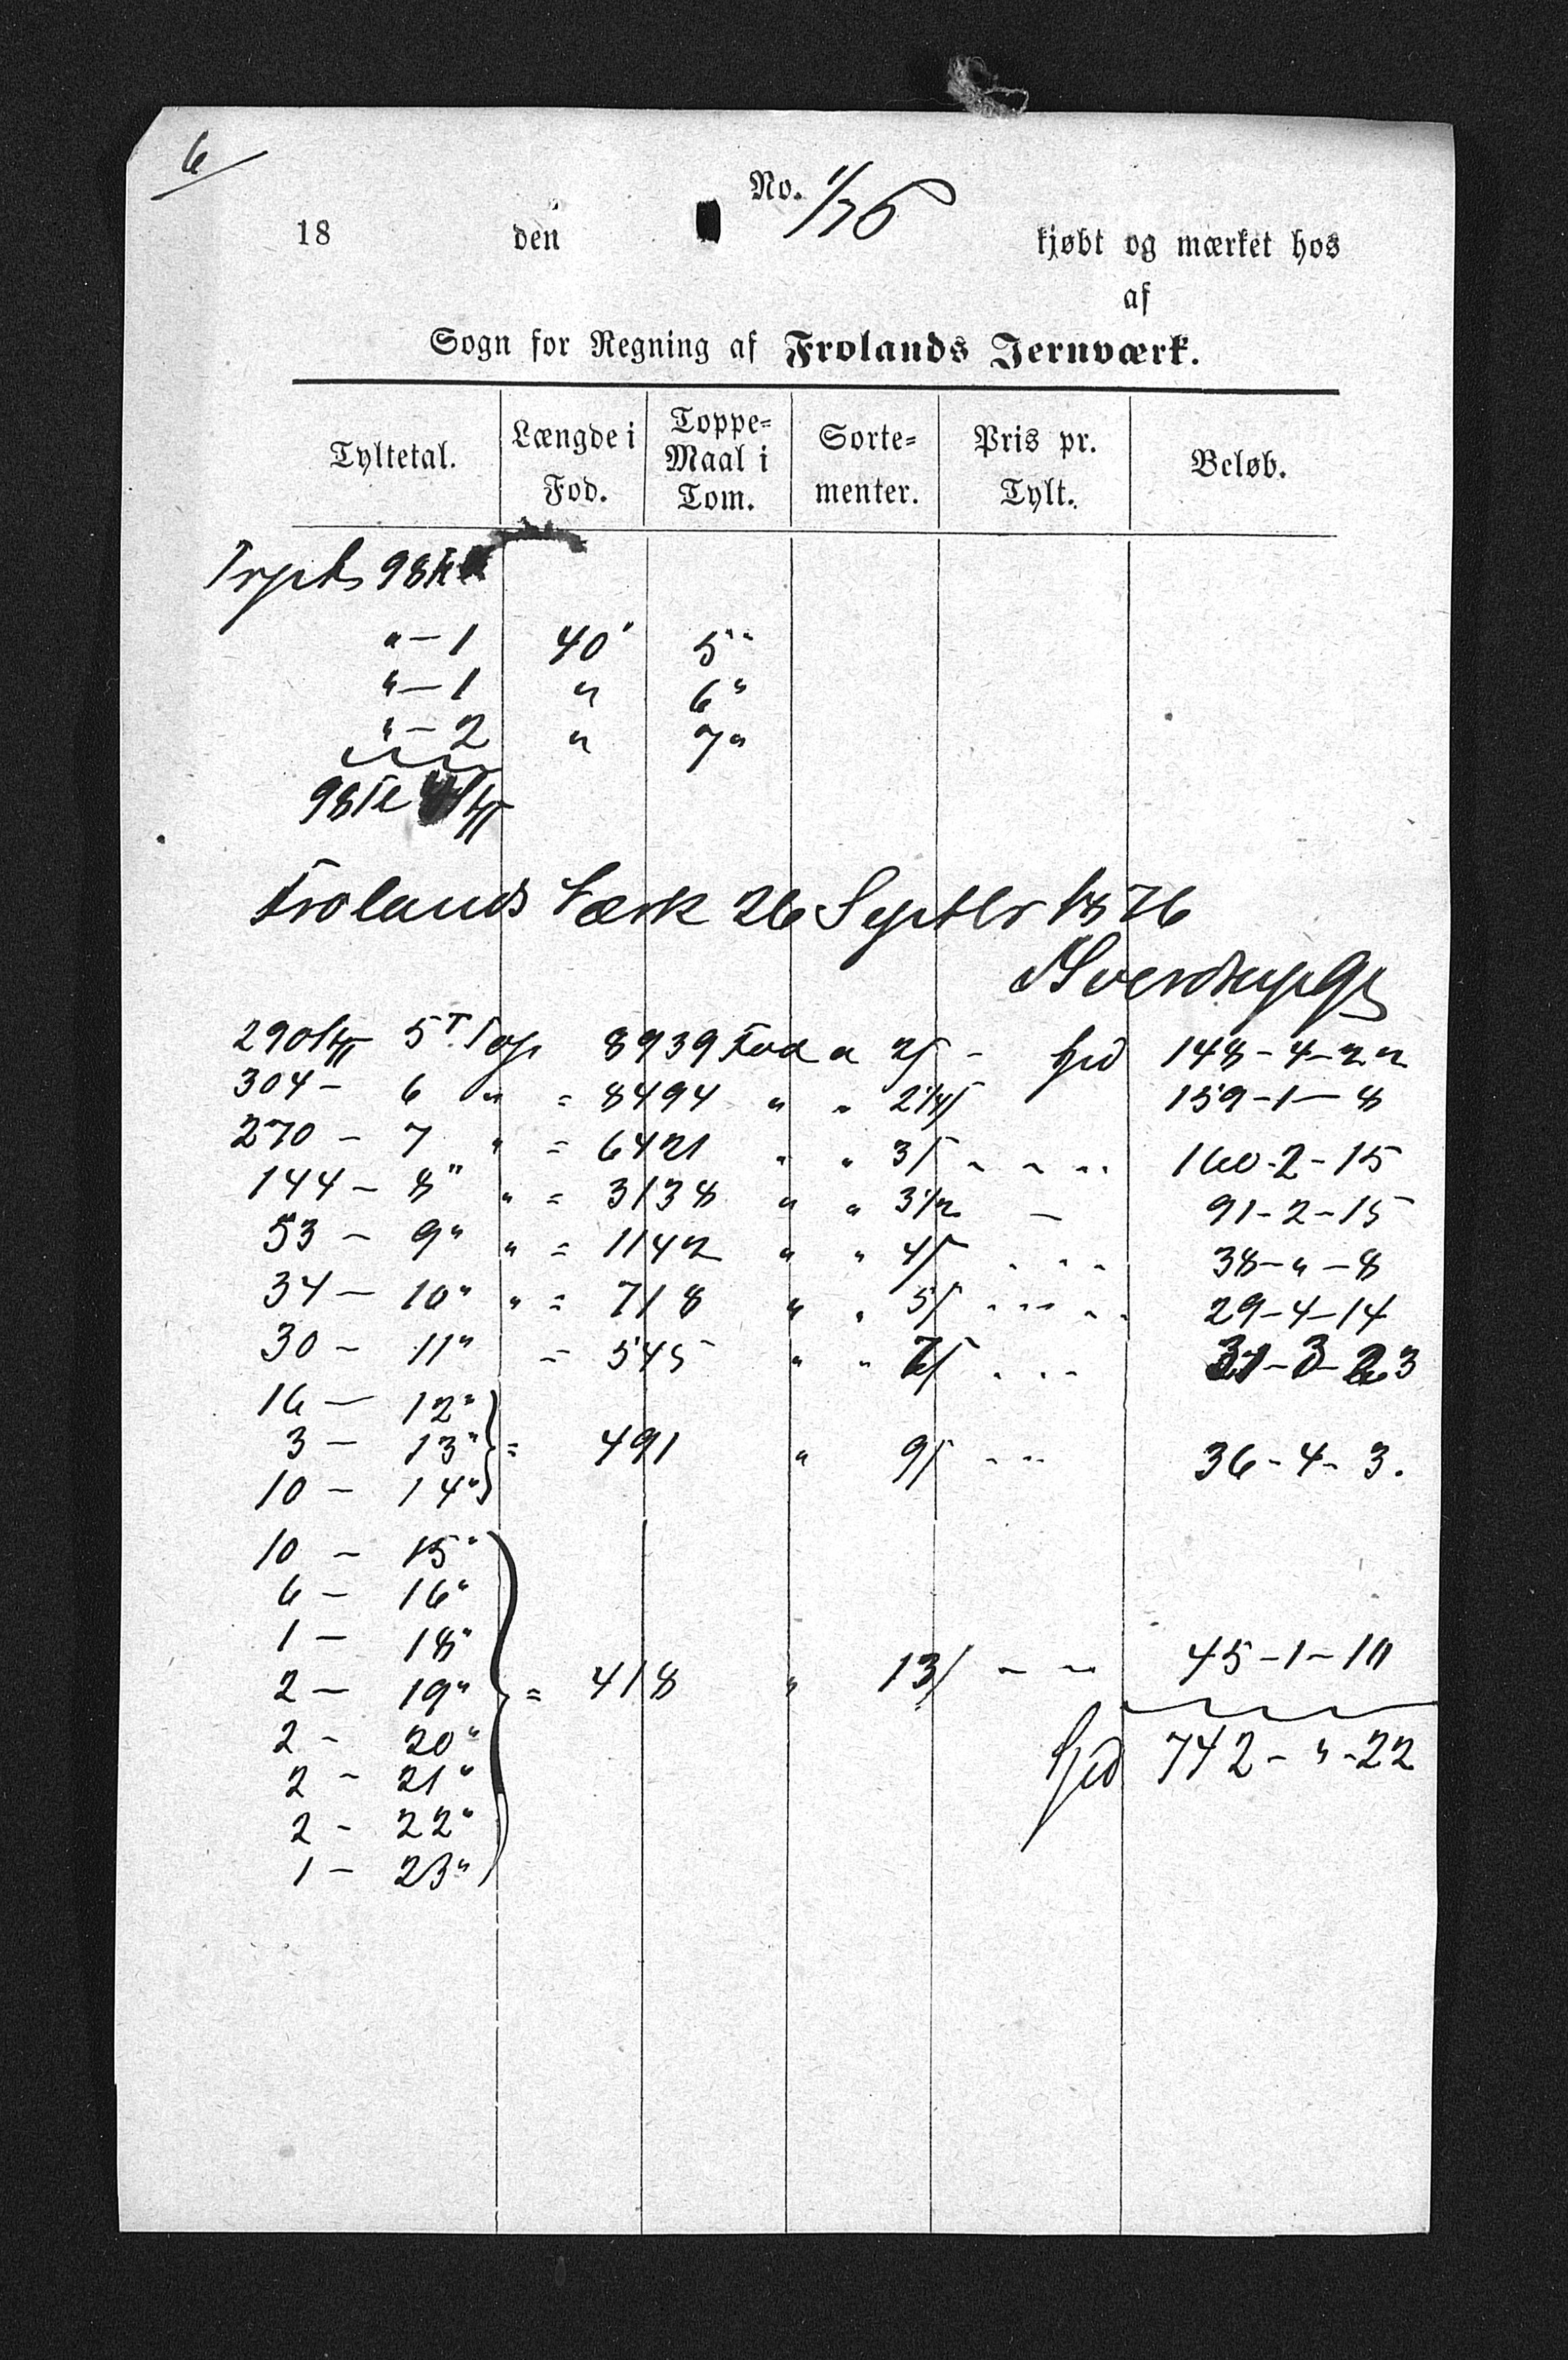 6
No. 1/76
18 den kjøbt og mærket hos
af
Sogn for Regning af Frolands Jernværk.
Tyltetal. Længde i Fod. Toppe-Maal i Tom. Sorte-menter. Pris pr. Tylt. Beløb.
98
" — 1 40' 5"
" — 1 " 6"
" — 2 " 7"
98
Frolands Værk 26 Septbr 1876
290 5 T. Top 8939 Fod a 2/ - 148-4-22
304 - 6 " = 8494 " " 2 1/4/ 159-1-8
270 - 7 " = 6421 " " 3/ 160-2-15
144 - 8" " = 3138 " " 3 1/2 — 91-2-15
53 - 9" " = 1142 " " 4/ 38-"-8
34 - 10" " = 718 " " 5/ 29-4-14
30 - 11" = 545 " " 7/ 31-3-23
16 — 12"
3 — 13" = 491 " 9/ 36-4-3.
10 - 14"
10 - 15"
6 - 16"
1 - 18"
2 - 19" = 418 " 13/ 45-1-10
2 - 20" 742-"-22
2 - 21"
2 - 22"
1 - 23"